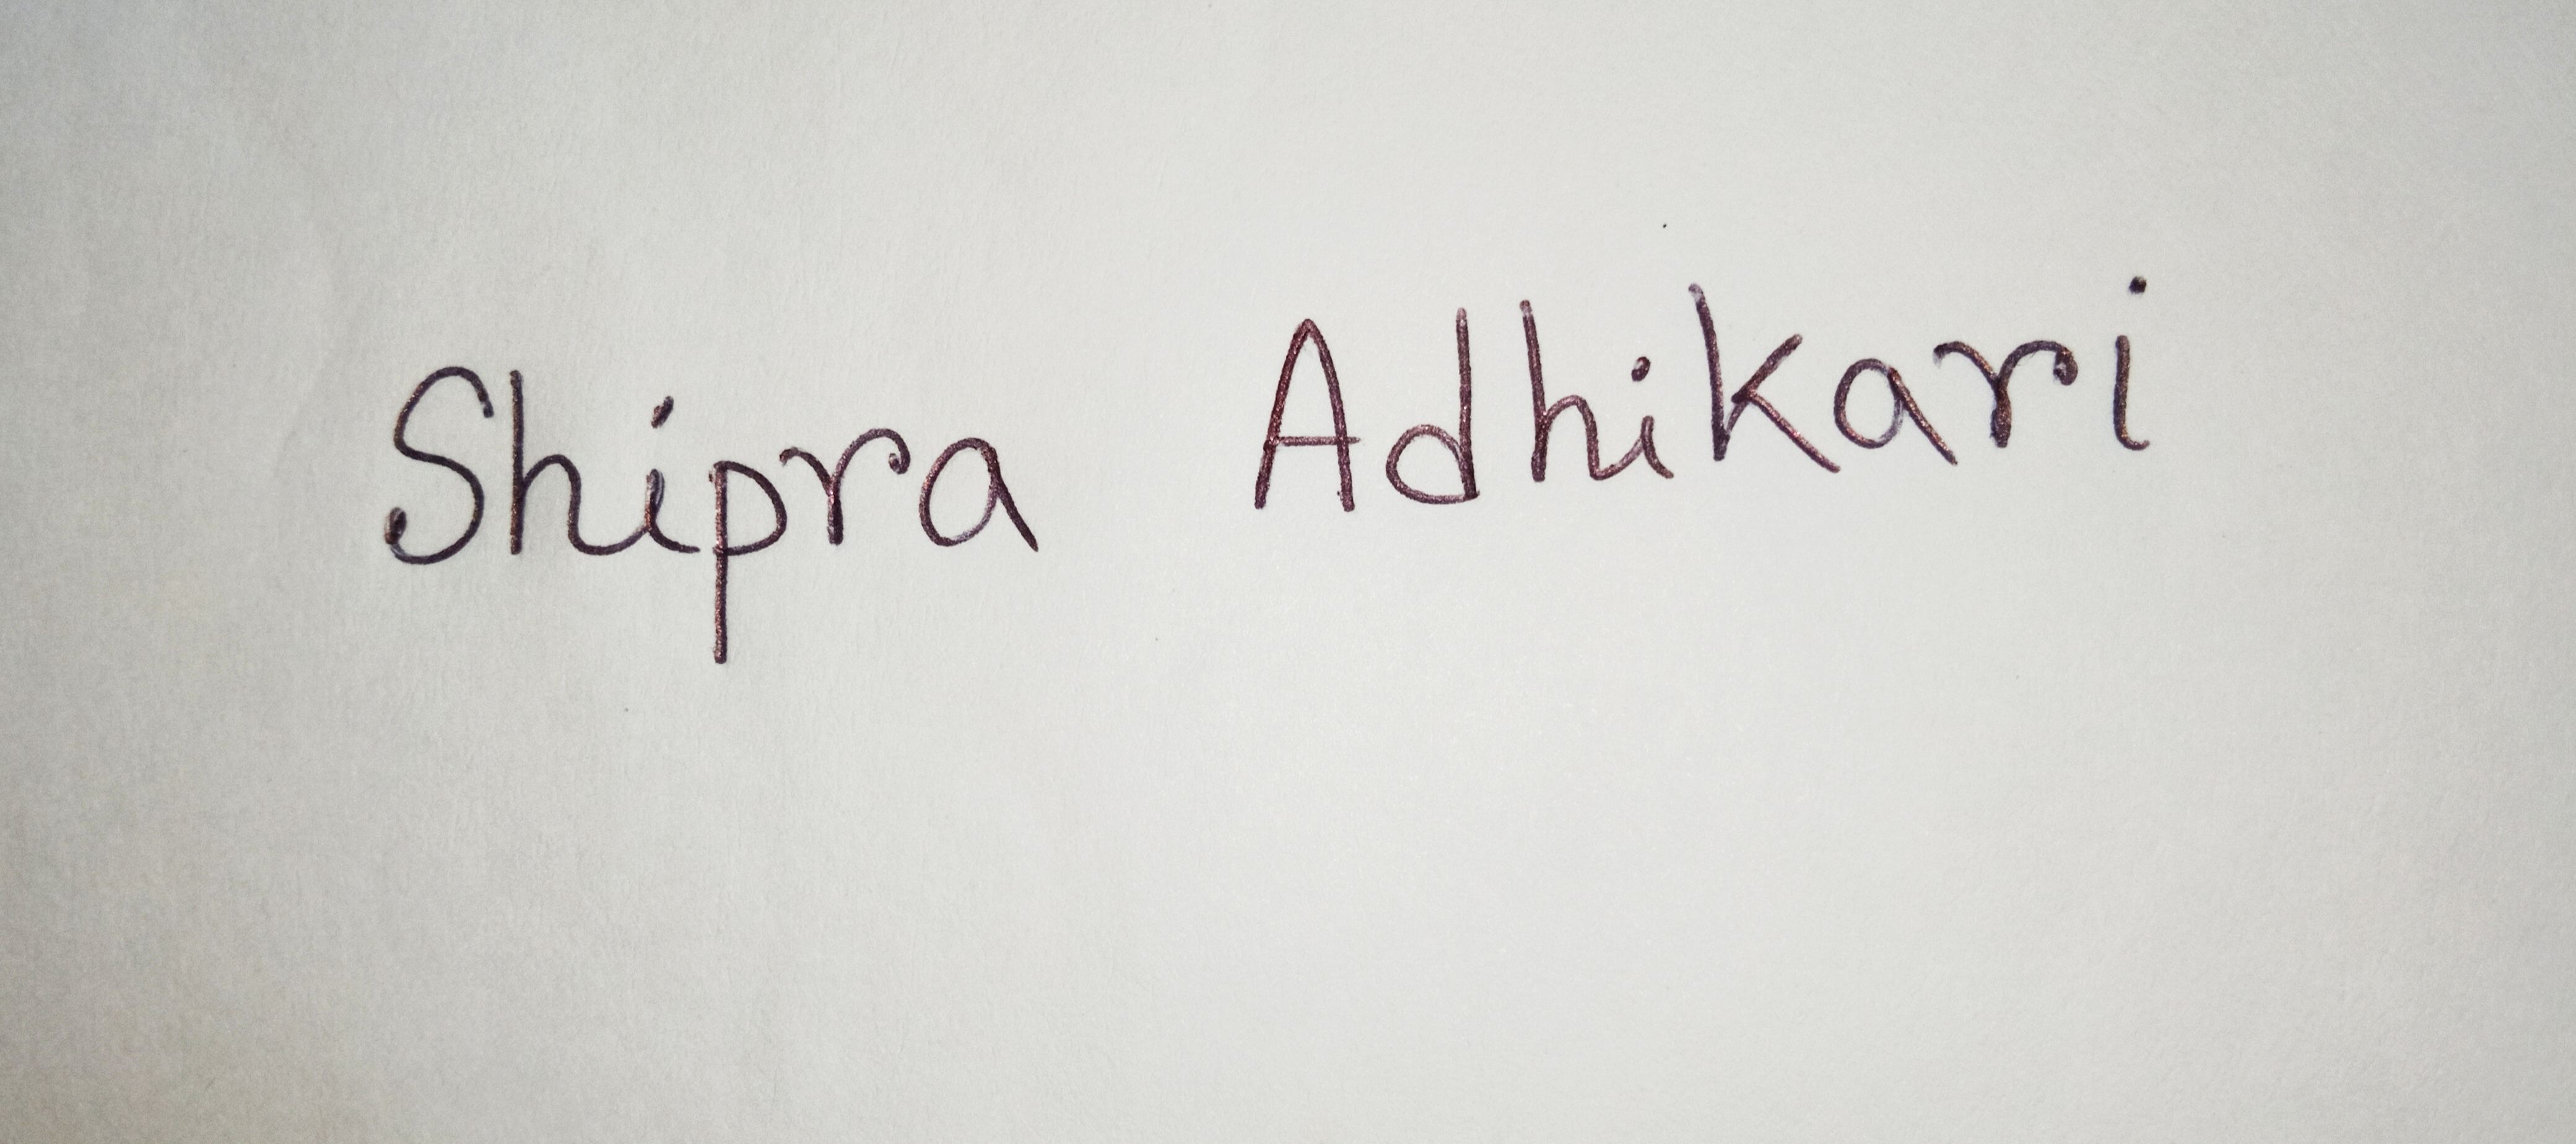 Shipra Adhikari